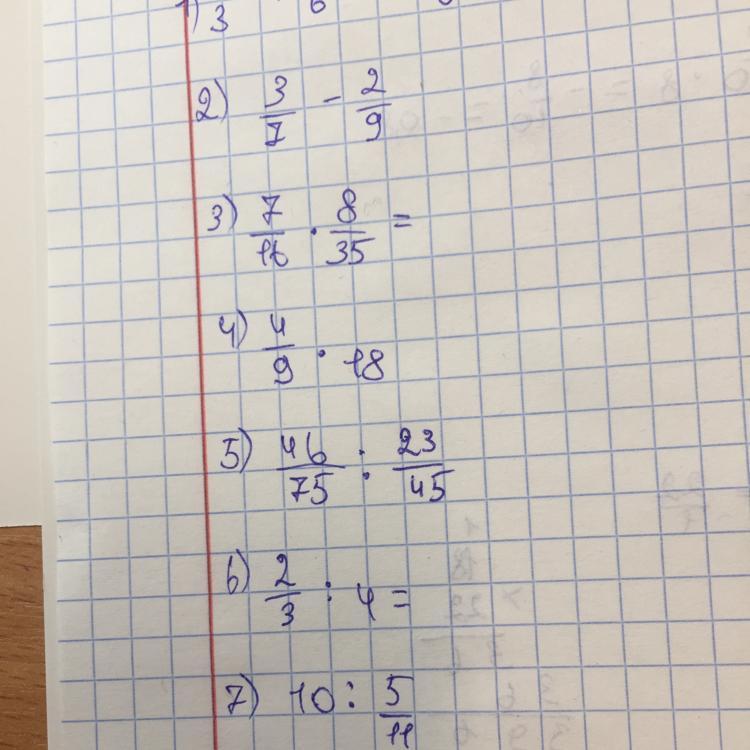 2) 3/7 - 2/9
3) 7/16 · 8/35 =
4) 4/9 · 18
5) 46/75 : 23/45
6) 2/3 : 4 =
7) 10 : 5/11